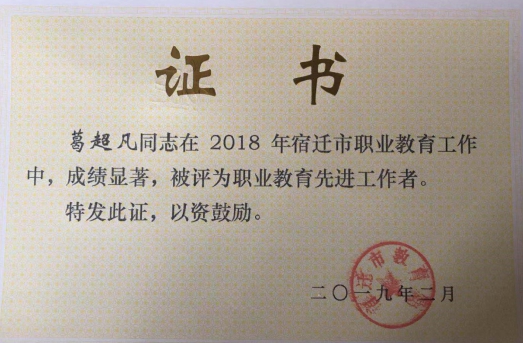 证书
葛超凡同志在 2018 年宿迁市职业教育工作
中，成绩显著，被评为职业教育先进工作者。
特发此证，以资鼓励。
宿迁市教育局
二〇一九年二月